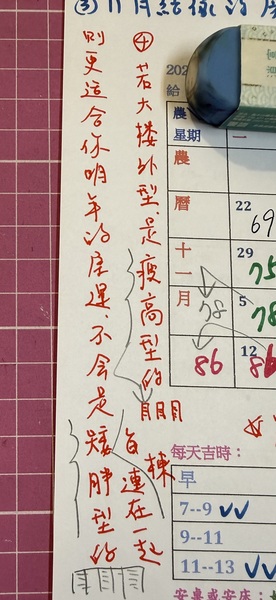 ③11月結緣的房
④若大楼外型是瘦高型的
則更這合你明年的房運,不会是矮胖型的
各棟連在一起
202
給
農
星期 一
農
曆 22 69
十一月 29 75
78 5 78
86 12 86
每天吉時：
早
7--9 ✓✓
9--11
11--13 ✓✓
安桌或安床：